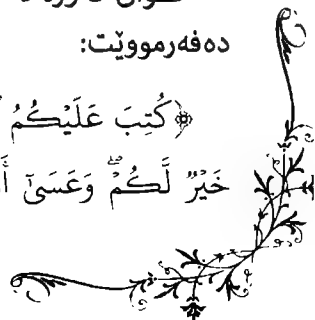 دەفەرموویت:
﴿كُتِبَ عَلَيْكُمُ
خَيْرٌ لَّكُمْ ۖ وَعَسَىٰٓ